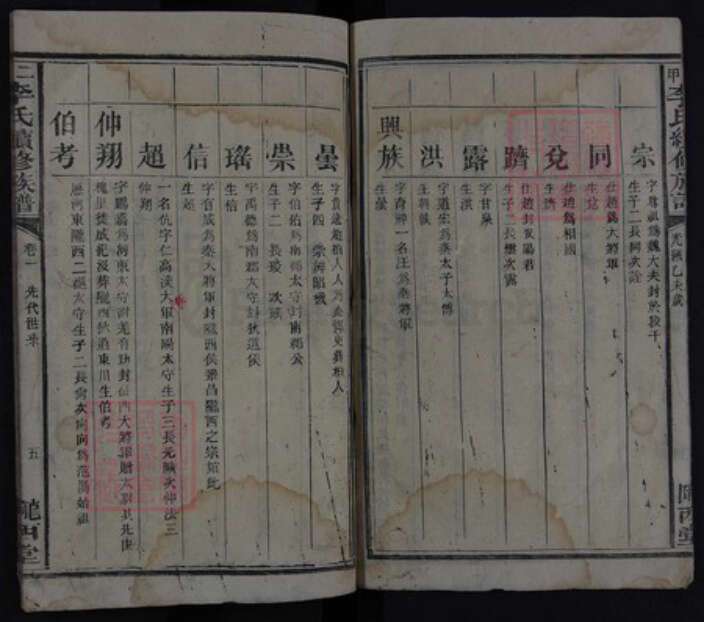 李氏續修族譜
光緒乙未歲
隴西堂
宗
字尊祖為魏大夫封於段干
生子二長同次詮
同
仕趙為大將軍
生兌
兌
仕趙為相國
生躋
躋
仕趙封
陽君
生子二長
次露
露
字甘泉
生洪
洪
字道宏為秦太子太傅
生興族
興族
字育神一名汪為秦將軍
生曇
曇
字貴遠趙柏人入為秦御史葬柏人
生子四 崇辨昭璣
崇
字伯祐為南鄭太守封南鄭公
生子二 長
次瑤
瑤
字禹德為南郡太守封狄道侯
生信
信
字有成為秦大將軍封隴西侯
隴西之宗始此
生超
超
一名伉字仁高漢大將軍南陽太守生子三長元曠次仲法三
仲翔
仲翔
字鵬霄為河東太守
有功封
西大將軍贈太尉
槐里
狄道東川生伯考
伯考
歷河東隴西二郡太守生子二長尚次向向為范陽始祖
二
李氏續修族譜
卷一
先代世系
五
隴西堂